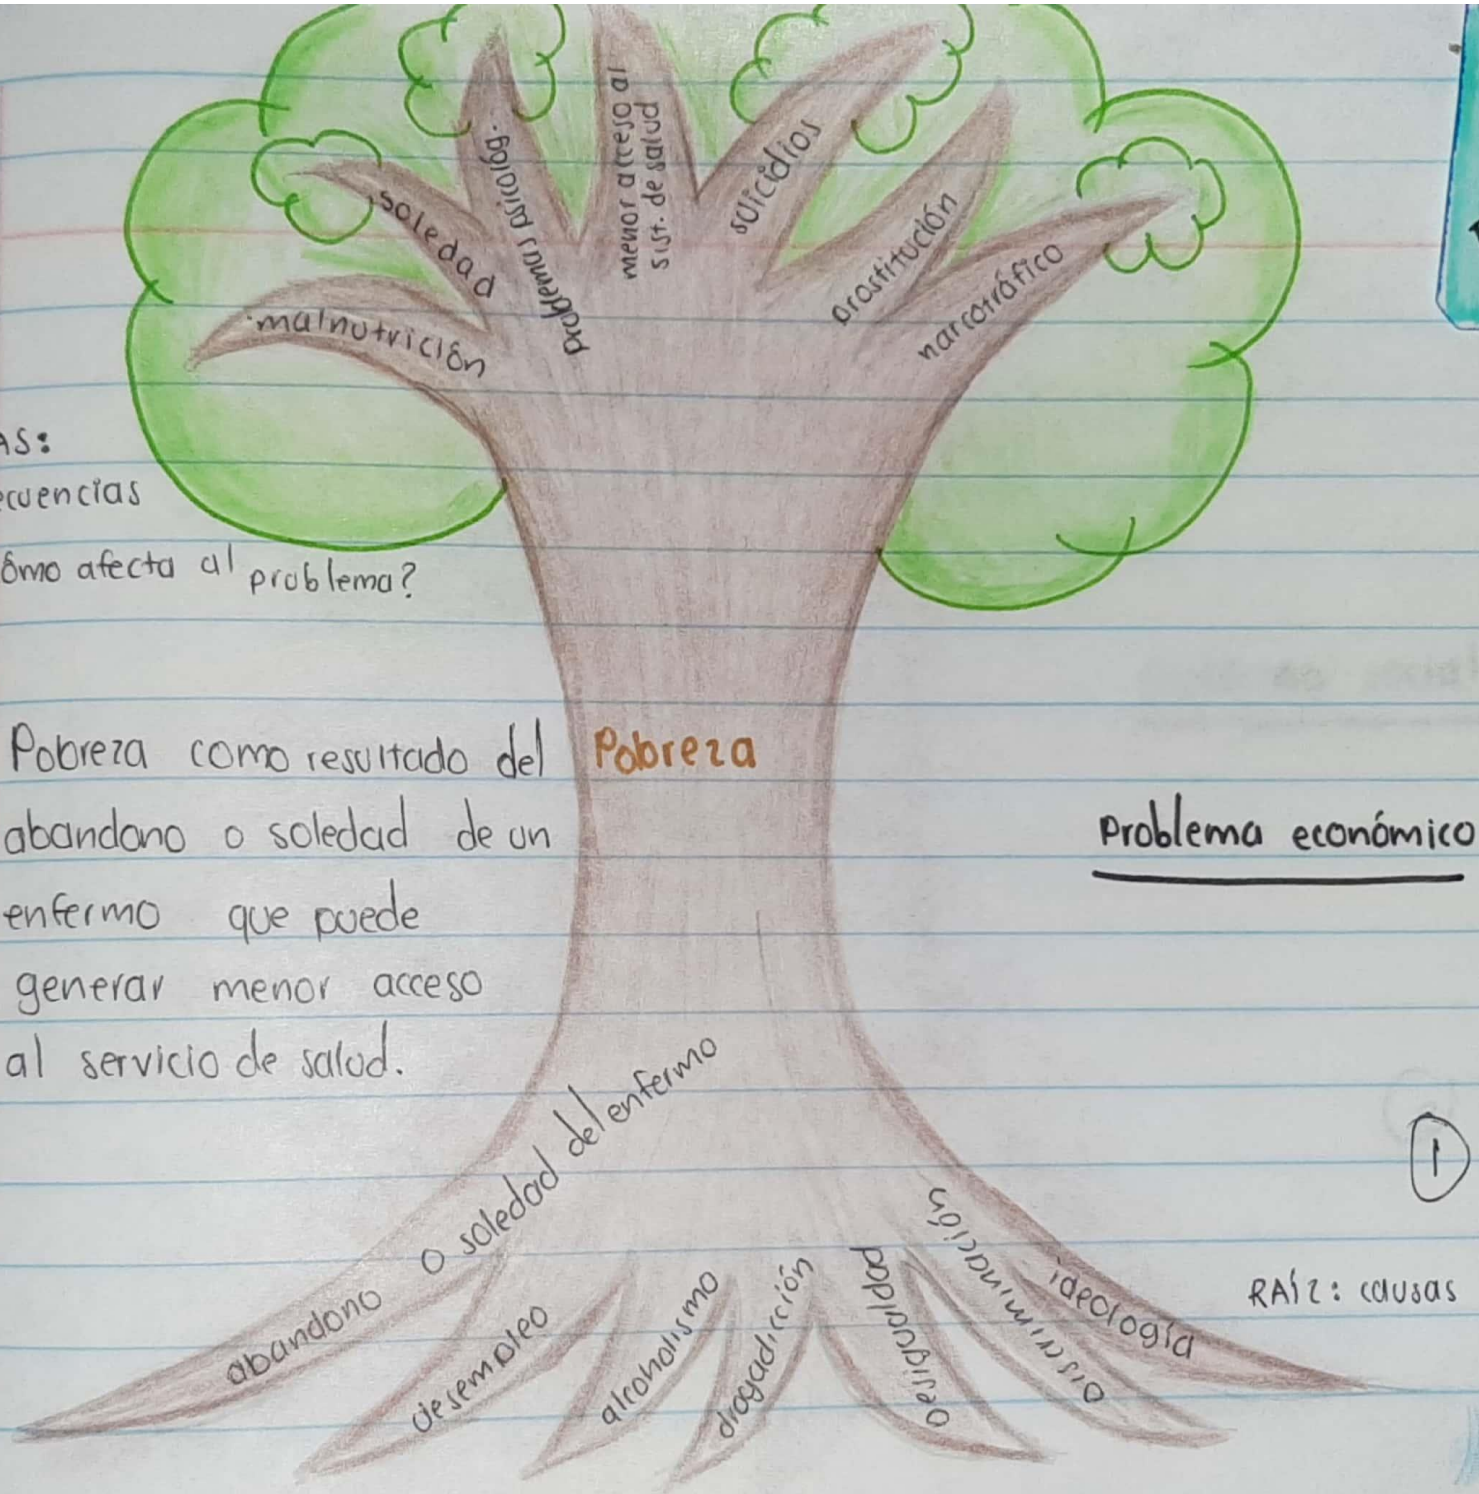 soledad
problemas psicológ.
menor acceso al
sist. de salud
suicidios
prostitución
narcotráfico
malnutrición
AS:
ecuencias
ómo afecta al problema?
Pobreza como resultado del
abandono o soledad de un
enfermo que puede
generar menor acceso
al servicio de salud.
Pobreza
Problema económico
1
abandono o soledad del enfermo
desempleo
alcoholismo
drogadicción
Desigualdad
Discriminación
ideología
RAÍZ: causas